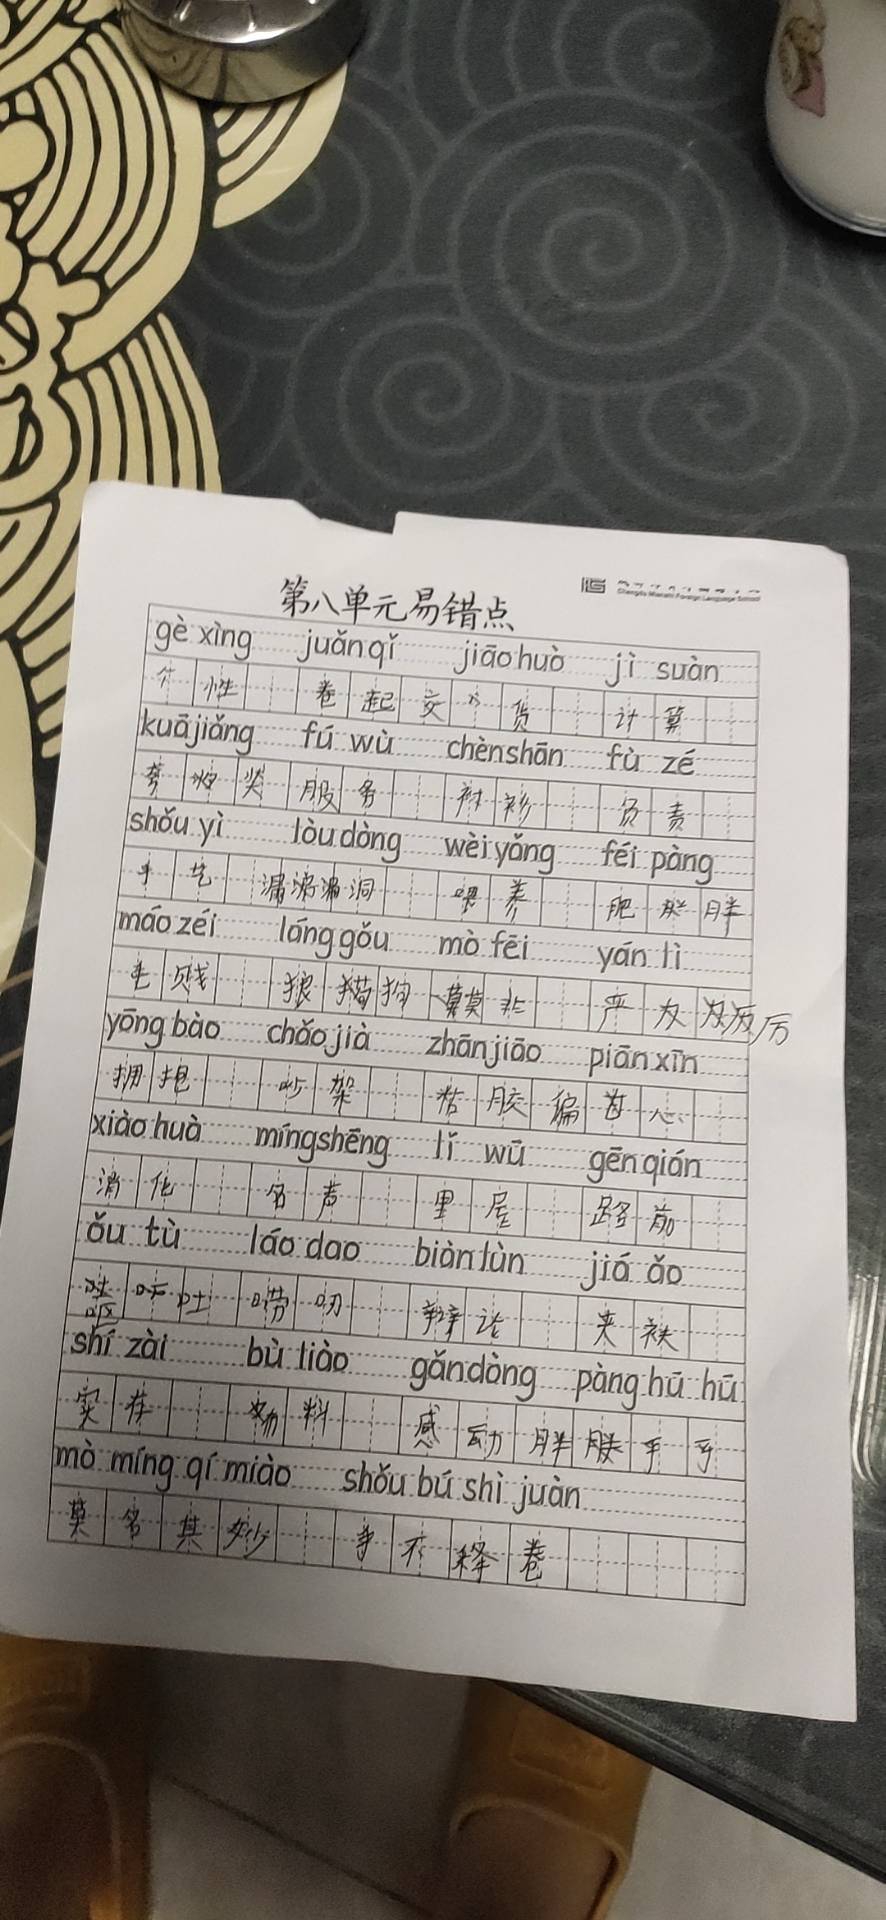 第八单元易错点
gè xìng juǎn qǐ jiāo huò jì suàn
个性 卷起 交 货 计算
kuā jiǎng fú wù chèn shān fù zé
夸 奖 服务 衬衫 负责
shǒu yì lòu dòng wèi yǎng féi pàng
手艺 漏 漏洞 喂养 肥 胖
máo zéi láng gǒu mò fēi yán lì
毛贼 狼 猎狗 莫非 严 厉
yōng bào chǎo jià zhān jiāo piān xīn
拥抱 吵架 粘胶 偏 心
xiào huà míng shēng lǐ wū gēn qián
消化 名声 里屋 路前
ǒu tù láo dao biàn lùn jiá ǎo
呕 吐 唠叨 辩论 夹袄
shí zài bù liào gǎn dòng pàng hū hū
实在 物料 感动 胖 乎乎
mò míng qí miào shǒu bú shì juàn
莫名其妙 手不释卷